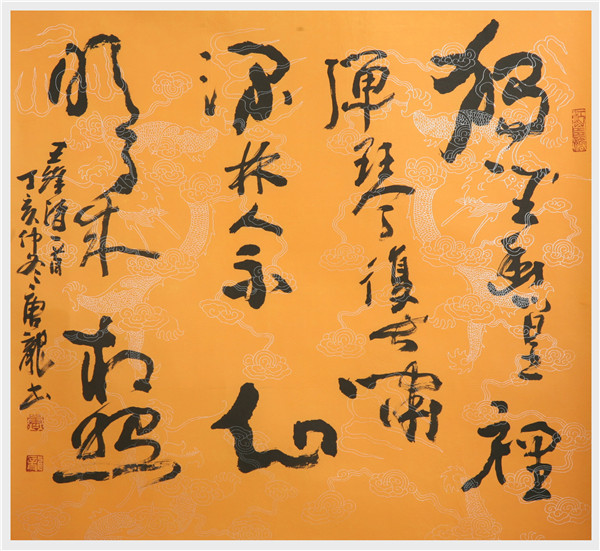 獨坐幽篁裡
彈琴復長嘯
深林人不知
明月来相照
王維詩一首
丁亥仲冬唐龍書